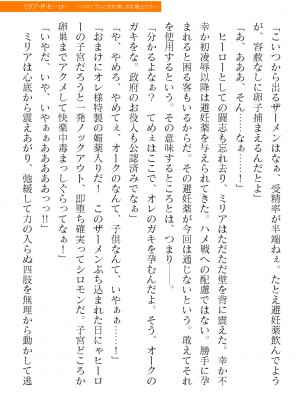 「こいつから出るザーメンはなぁ、受精率が半端ねぇ。たとえ避妊薬飲んでようが、容赦なしに卵子捕まえるんだとよ」
「あ、ああぁ、そん……なぁ……！」
ヒーローとしての闘志も忘れ去り、ミリアはただただ壁を背に震えた。幸か不幸か初凌辱以降は避妊薬を与えられてきた。ハメ戦への配慮ではない。勝手に孕まれると困る客もいるからだ。その避妊薬が今回は通じないという。敢えてそれを使用するという。その意味するところとは、つまり――。
「分かるよなぁ？　てめぇはここで、オレのガキを孕むんだよ。そう、オークのガキをな。政府のお役人も公認済みでなぁ」
「や、やめろ、やめてぇ、オークのなんて、子供なんて、いやぁぁ……！」
「おまけにオレ様特製の媚薬入りだ！　このザーメンぶち込まれた日にゃヒーローの子宮だろうと一発ノックアウト、即堕ち確実ってシロモンだ。子宮どころか卵巣までアクメして快楽中毒まっしぐらってなぁ！」
「いや、だ、いや、いやぁぁあああああっっ!!」
ミリアは心底から震えあがり、弛緩して力の入らぬ四肢を無理から動かして逃